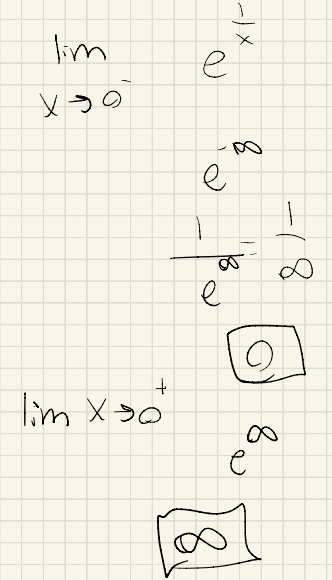 lim x→0⁻ e^(1/x)
e^(-∞)
1/e^∞ = 1/∞
0
lim x→0⁺
e^∞
∞